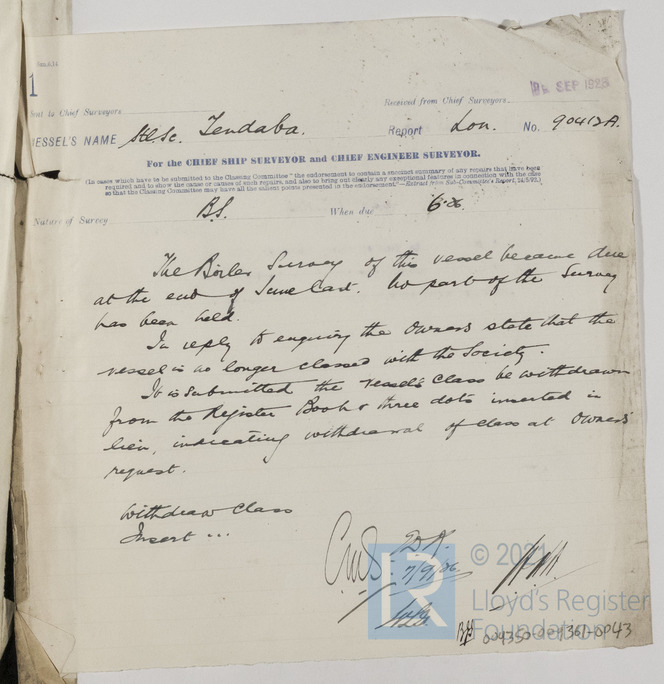 1
Sent to Chief Surveyors
Received from Chief Surveyors
SEP 1926
VESSEL'S NAME Stl.Sc. Tendaba. Report Lon. No. 90412A.
For the CHIEF SHIP SURVEYOR and CHIEF ENGINEER SURVEYOR.
(In cases which have to be submitted to the Classing Committee "the endorsement to contain a succinct summary of any repairs that have been
required and to show the cause or causes of such repairs, and also to bring out clearly any exceptional features in connection with the case
so that the Classing Committee may have all the salient points presented in the endorsement."—Extract from Sub-Committee's Report,
Nature of Survey B.S. When due 6.26
The Boiler Survey of this vessel became due
at the end of June last. No part of the Survey
has been held.
In reply to enquiry the Owners state that the
vessel is no longer classed with the Society.
It is submitted the vessel's class be withdrawn
from the Register Book & three dots inserted in
lieu, indicating withdrawal of class at Owners'
request.
Withdraw Class
Insert ...
7/9/26
© 2021
Lloyd's Register
Foundation
004350-004361-0043